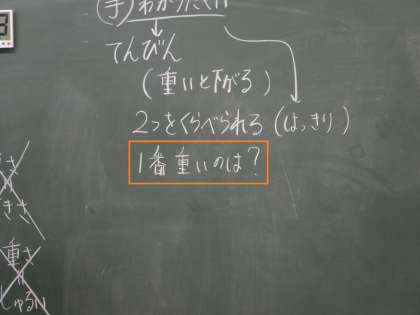 手 わかりにくい
てんびん
(重いと下がる)
2つをくらべられる(はっきり)
1番重いのは?
きさ
重さ
しゅるい